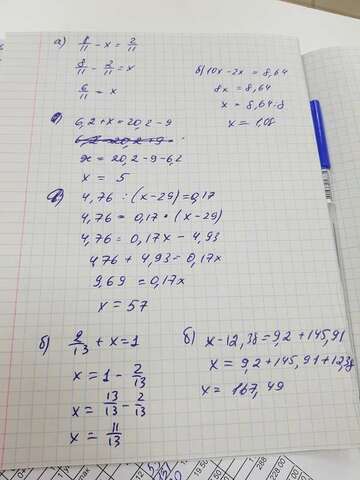 а) 8/11 - x = 2/11
8/11 - 2/11 = x
6/11 = x
б) 10x - 2x = 8,64
8x = 8,64
x = 8,64 · 8
x = 1,08
6,2 + x = 20,2 - 9
x = 20,2 - 9 - 6,2
x = 5
в) 4,76 : (x - 29) = 0,17
4,76 = 0,17 · (x - 29)
4,76 = 0,17x - 4,93
4,76 + 4,93 = 0,17x
9,69 = 0,17x
x = 57
б) 2/13 + x = 1
x = 1 - 2/13
x = 13/13 - 2/13
x = 11/13
б) x - 12,38 = 9,2 + 145,91
x = 9,2 + 145,91 + 12,38
x = 167,49